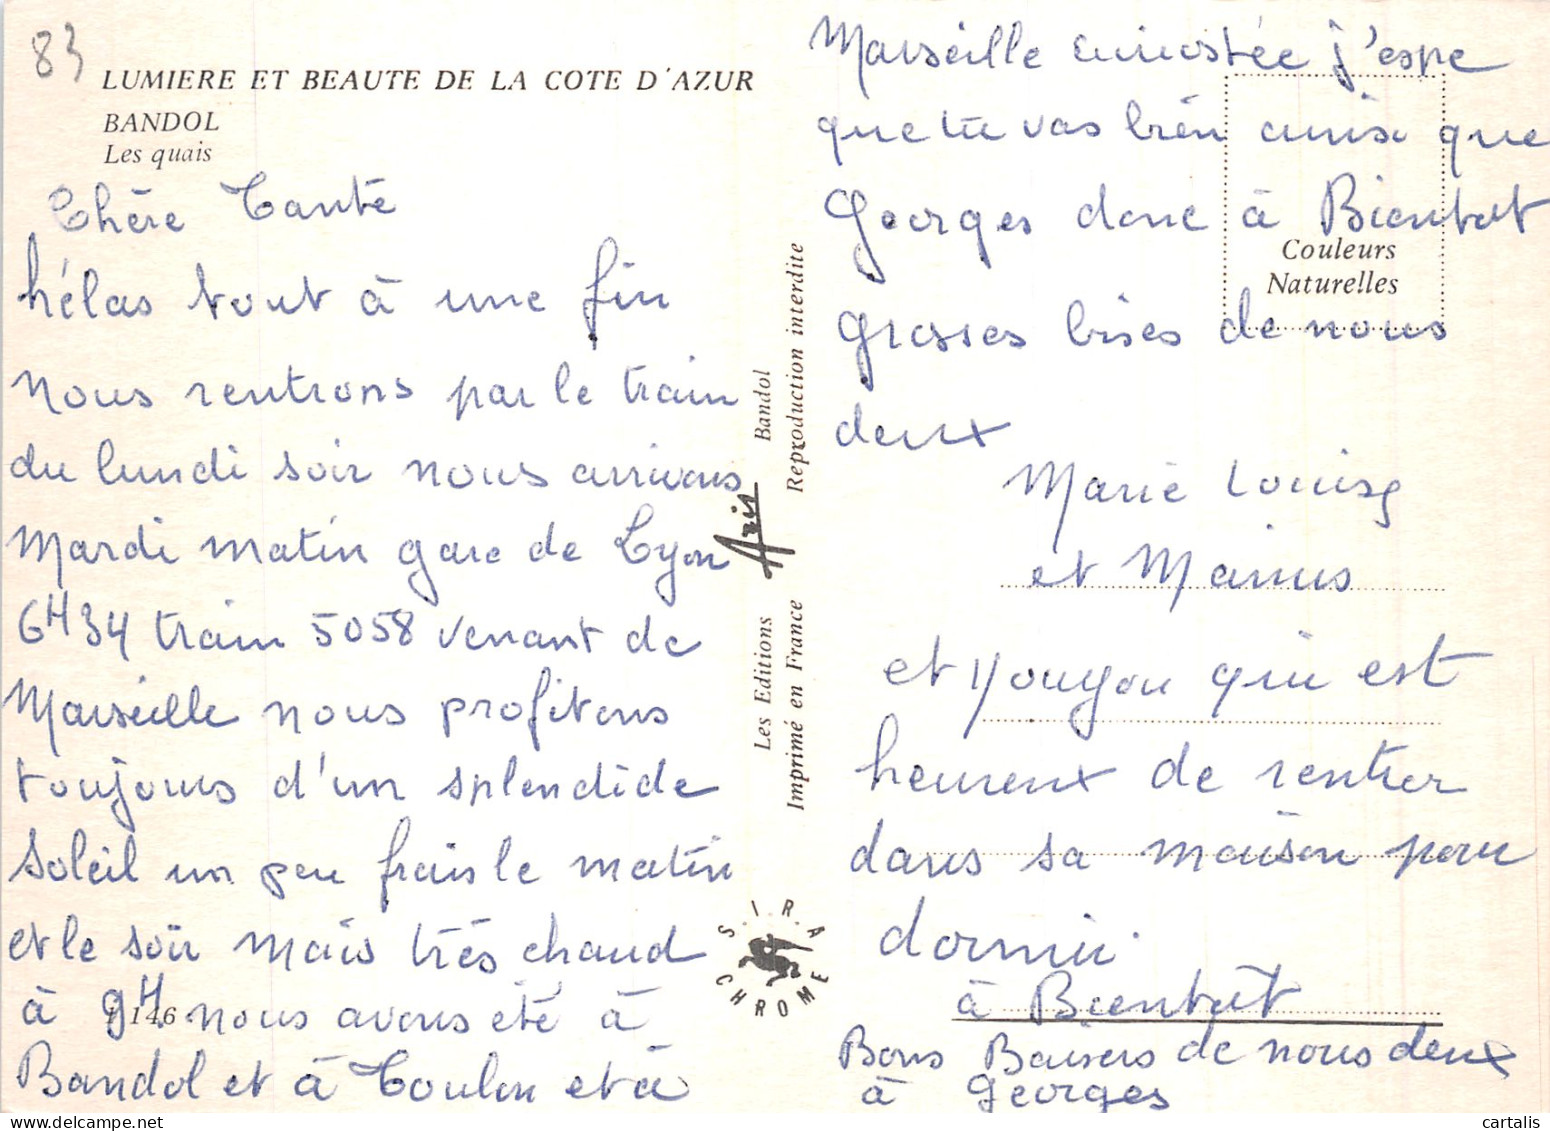 83
LUMIERE ET BEAUTE DE LA COTE D'AZUR
BANDOL
Les quais
Chère Tante
hélas tout à une fin
nous rentrons par le train
du lundi soir nous arrivons
Mardi matin gare de Lyon
6H34 train 5058 venant de
Marseille nous profitons
toujours d'un splendide
soleil un peu frais le matin
et le soir mais très chaud
à 9H nous avons été à
1.146
Bandol et à Toulon et à
Les Editions Aris Bandol
Imprimé en France Reproduction interdite
S.I.R.A
CHROME
Marseille j'espe
que tu vas bien ainsi que
Georges donc à Bientut
Couleurs
Naturelles
grosses bises de nous
deux
Marie Louise
et Marius
et Youyou qui est
heureux de rentrer
dans sa maison pour
dormir.
à Bientut
Bons Baisers de nous deux
à Georges
cartalis